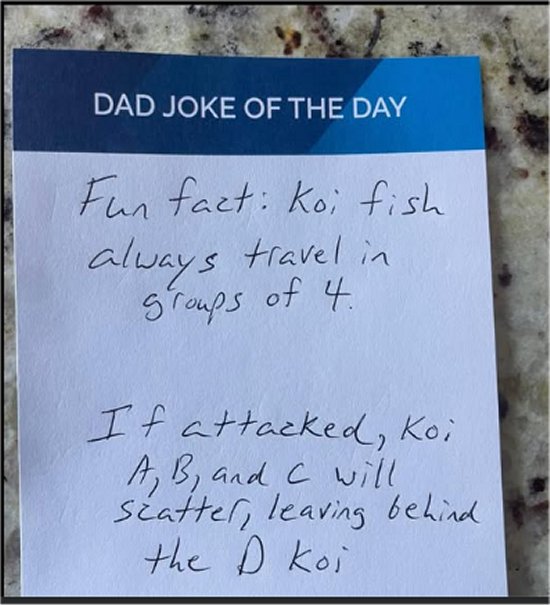 DAD JOKE OF THE DAY
Fun fact: Koi fish
always travel in
groups of 4.
If attacked, Koi
A, B, and C will
scatter, leaving behind
the D Koi